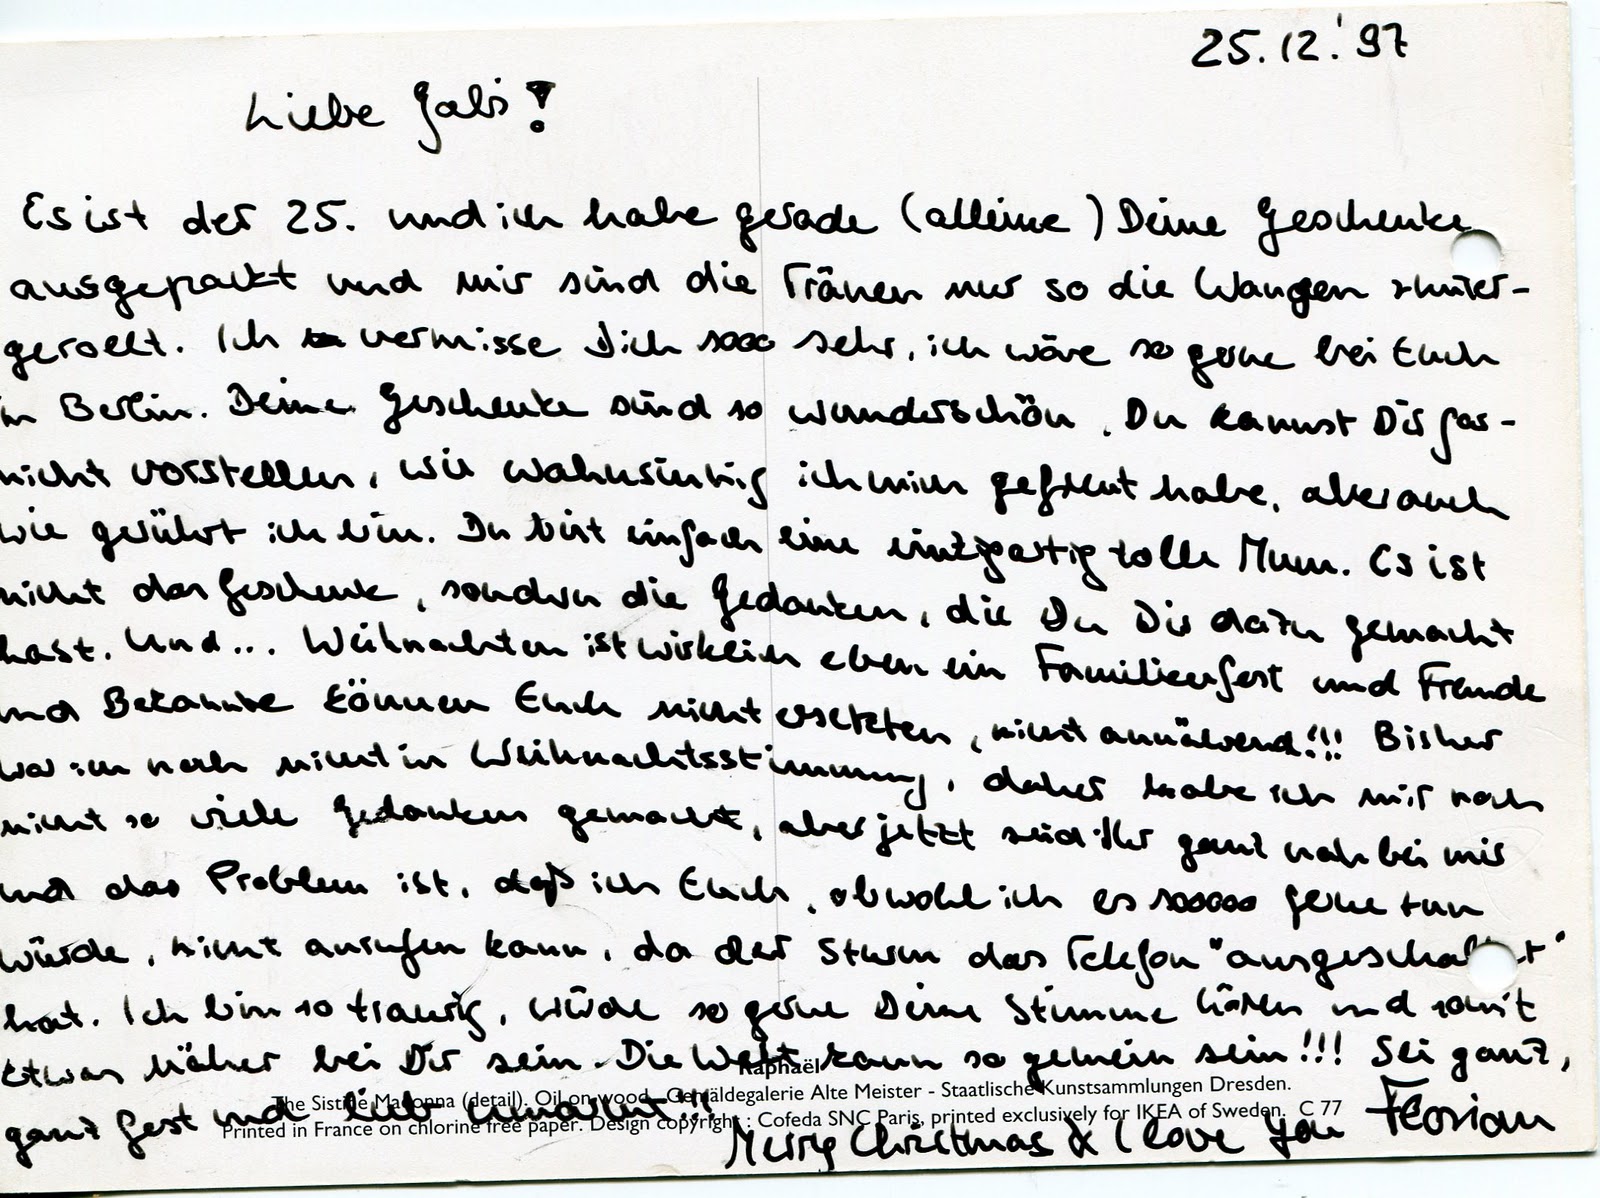 25.12.'97
Liebe Gabi!
Es ist der 25. und ich habe gerade (alleine) Deine Geschenke
ausgepackt und mir sind die Tränen nur so die Wangen runter-
gerollt. Ich vermisse Dich sooo sehr, ich wäre so gerne bei Euch
in Berlin. Deine Geschenke sind so wunderschön. Du kannst Dir gar-
nicht vorstellen, wie wahnsinnig ich mich gefreut habe, aber auch
wie gerührt ich bin. Du bist einfach eine einzigartig tolle Mum. Es ist
nicht das Geschenk, sondern die Gedanken, die Du Dir dazu gemacht
hast. Und... Weihnachten ist wirklich eben ein Familienfest und Freunde
und Bekannte können Euch nicht ersetzten, nicht annäherend!!! Bisher
war ich noch nicht in Weihnachtsstimmung, daher habe ich mir noch
nicht so viele Gedanken gemacht, aber jetzt seid Ihr ganz nah bei mir
und das Problem ist, daß ich Euch, obwohl ich es sooooo gerne tun
würde, nicht anrufen kann, da der Sturm das Telefon "ausgeschaltet"
hat. Ich bin so traurig, würde so gerne Deine Stimme hören und somit
etwas näher bei Dir sein. Die Welt kann so gemein sein!!! Sei ganz,
Raphaël
The Sistine Madonna (detail). Oil on wood. Gemäldegalerie Alte Meister - Staatlische Kunstsammlungen Dresden.
ganz fest und lieb umarmt!!!
Printed in France on chlorine free paper. Design copyright : Cofeda SNC Paris, printed exclusively for IKEA of Sweden. C 77
Merry Christmas & I love you Florian